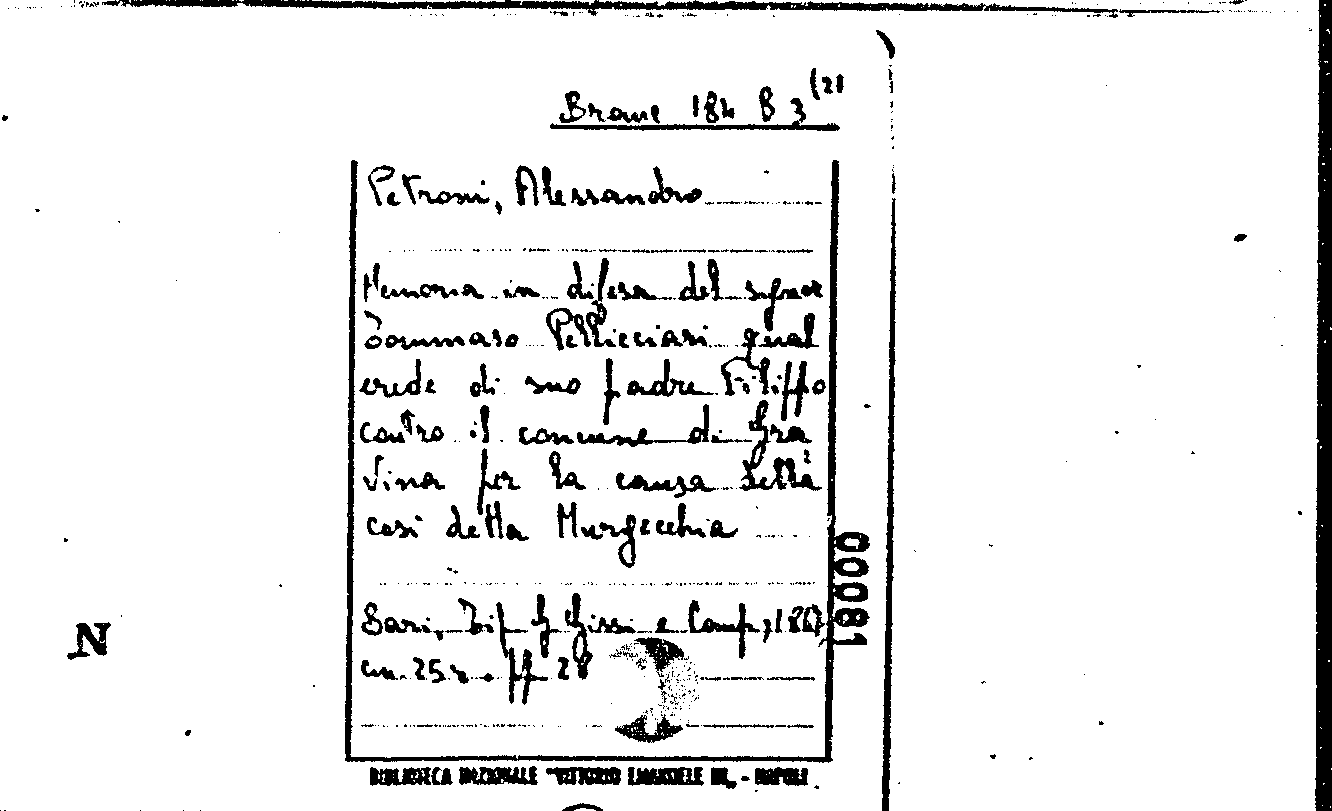 Branc 184 B 3 (2)
Petroni, Alessandro
Memoria in difesa del signor
Tommaso Pellicciari qual
erede di suo padre Filippo
contro il comune di Gra
vina per la causa detta
così della Murgecchia
Bari, Tip G Gissi e Comp, 1867
cm. 25. pp 28
00081
N
BIBLIOTECA NAZIONALE "VITTORIO EMANUELE III" - NAPOLI